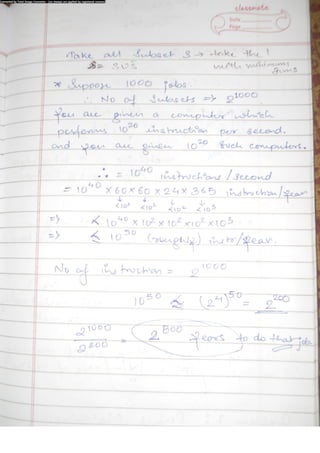 classmate
Date
Page
Take all Subset S → take the 1
S = SUS with minimum sums
* Suppose 1000 jobs.
∴ No of Subsets => 2^1000
You are given a computer which
performs 10^20 instruction per second.
and you are given 10^20 such computers.
∴ = 10^40 instructions / second
= 10^40 × 60 × 60 × 24 × 365 instruction/year
↓ ↓ ↓ ↓
<10^2 <10^2 <10^2 <10^3
=> < 10^40 × 10^2 × 10^2 × 10^2 × 10^3
=> ≤ 10^50 (roughly) instr/year.
No of instruction = 2^1000
10^50 ≲ (2^4)^50 = 2^200
2^1000 / 2^200 = 2^800 years to do that job